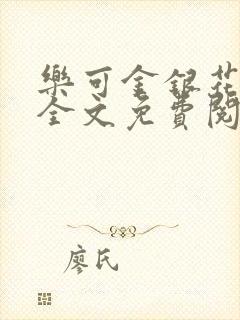 樂可金銀花
全文免費閱
廖氏